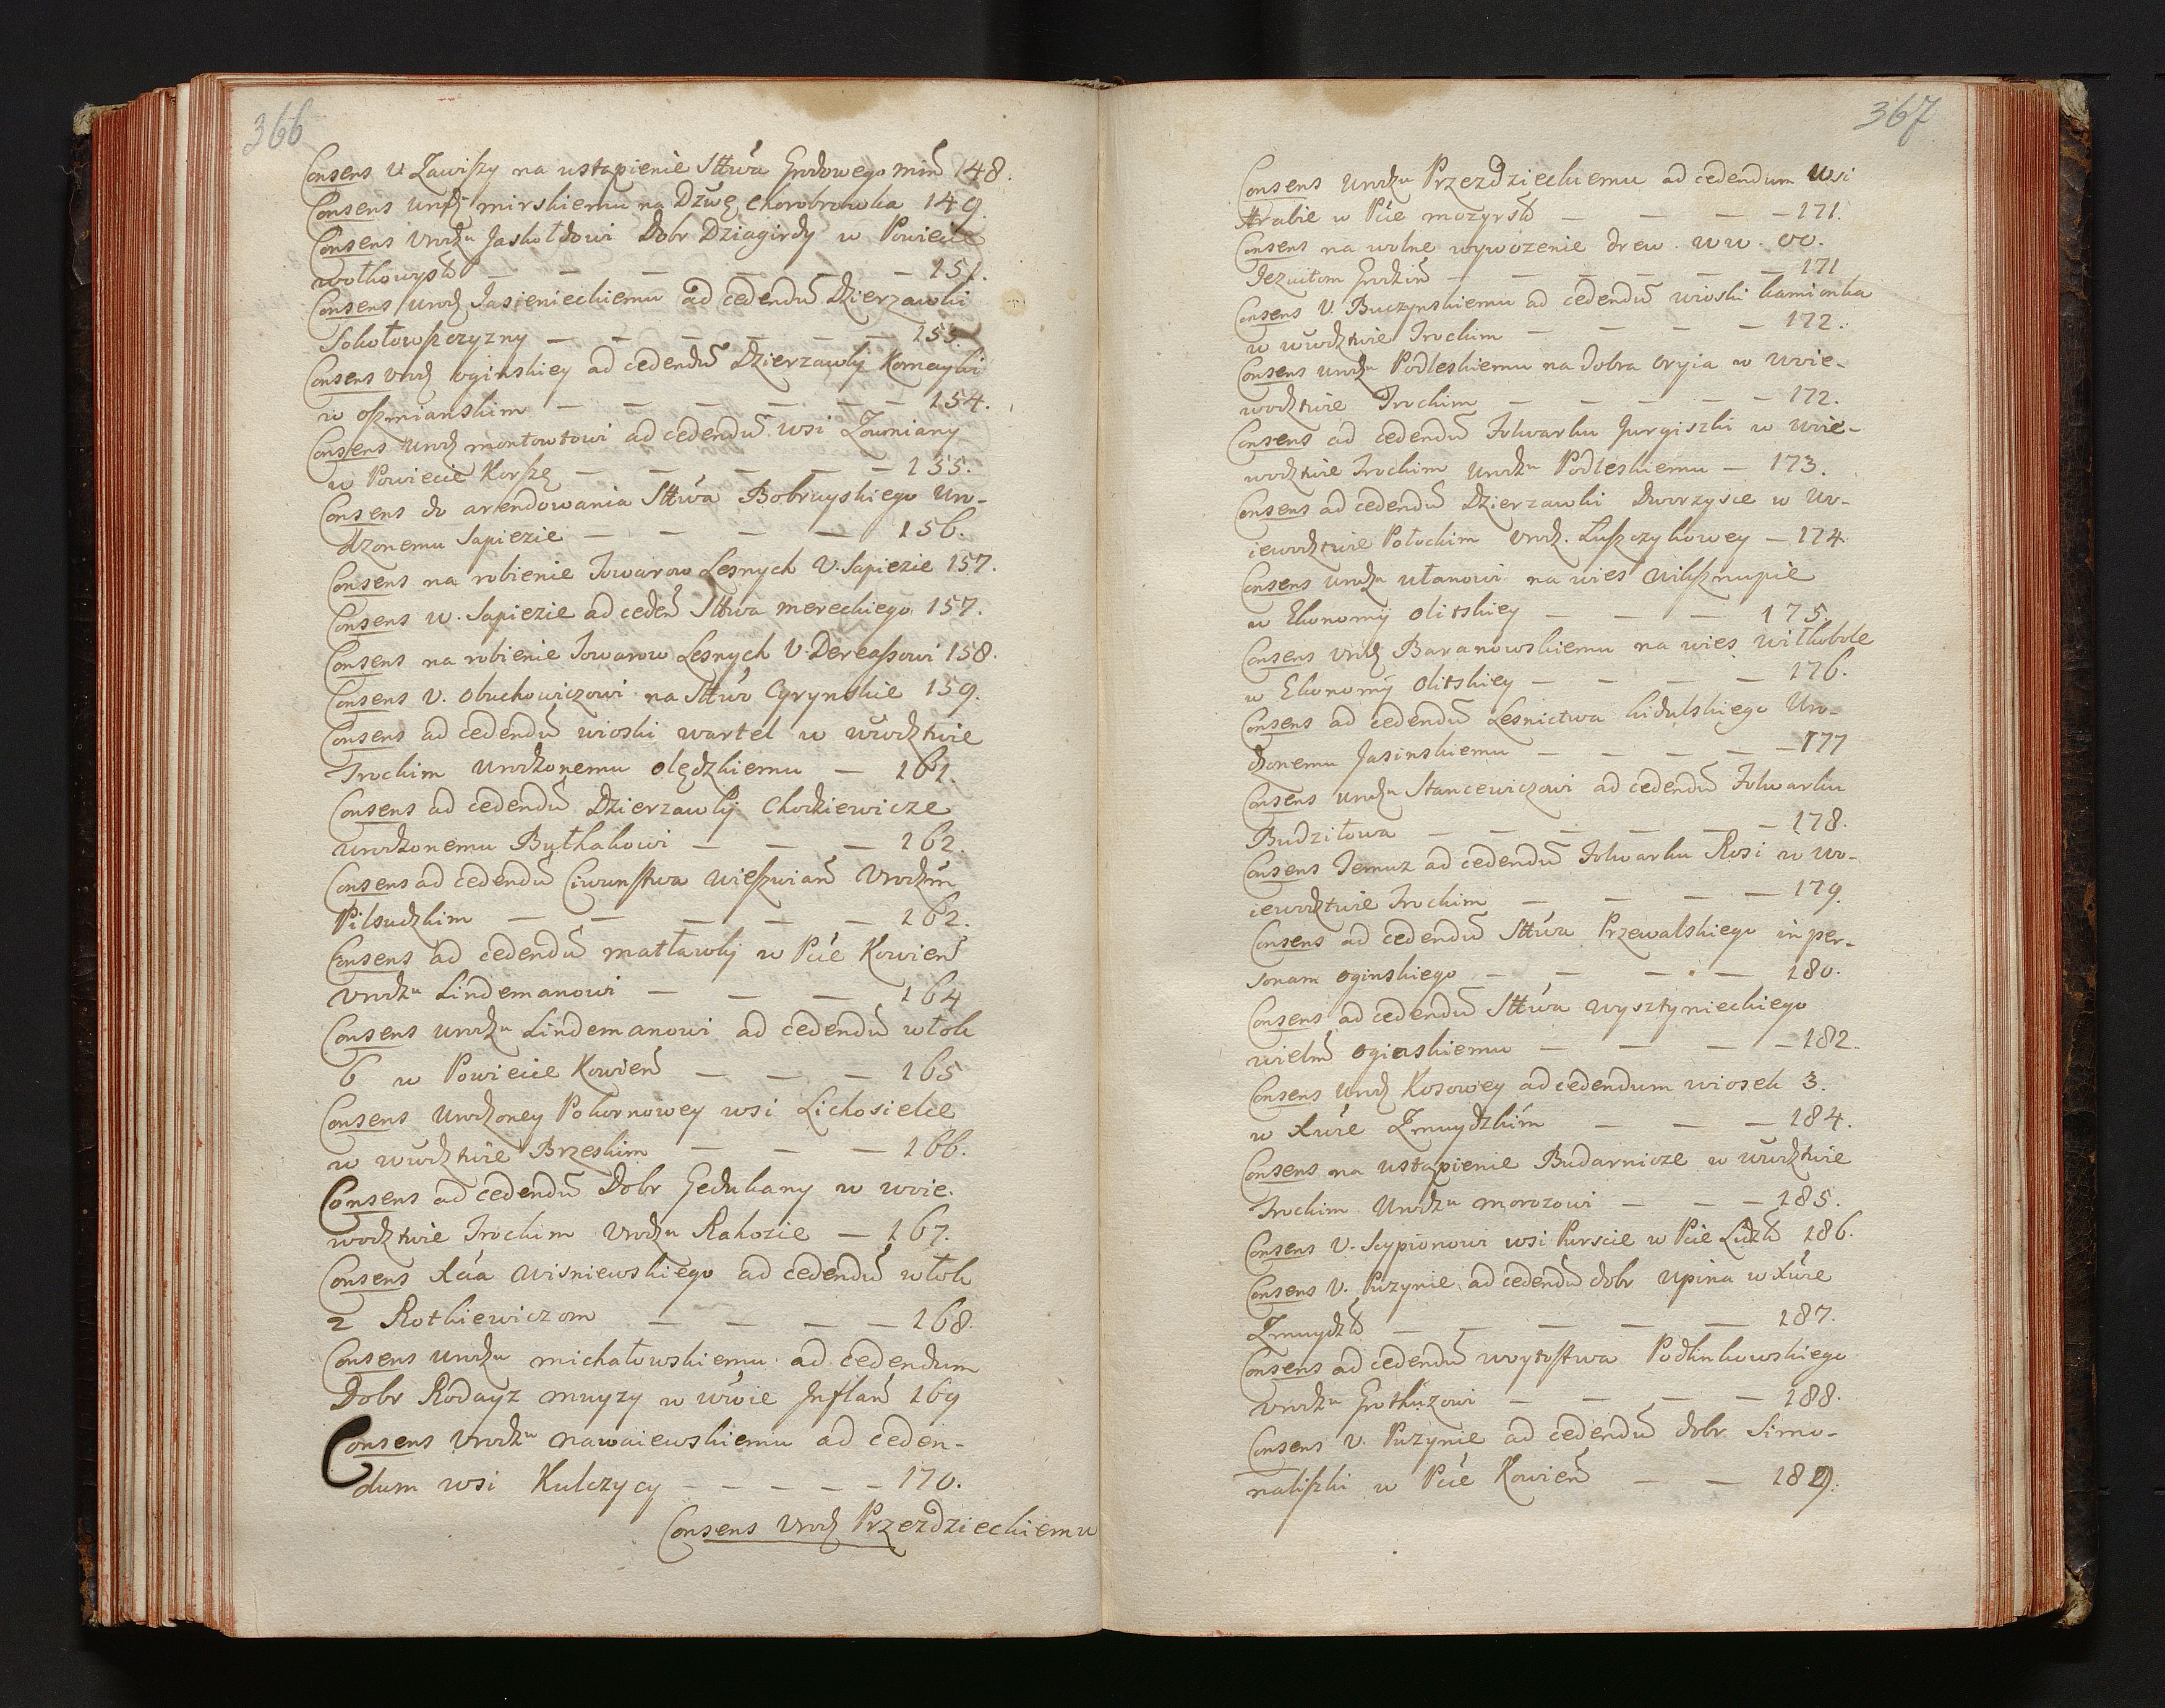 366
Consens V. Zawiszy na ustąpienie Sttwa Grodowego min 148.
Consens Urodz mirskiemu na Dzwę Chorobrowka 149.
Consens Urodzu Jaskołdowi Dobr Dziagirdy w Powiecie
wołkowysk — — — — — 151.
Consens Urodz Jasienieckiemu ad cedendu Dzierzawki
Sokołowszczyzny — — — — — 155.
Consens Urodz Oginskiey ad cedendu Dzierzawki Komayki
w oszmianskim — — — — — 154.
Consens Urodz montowtowi ad cedendu wsi Zowniany
w Powiecie Korszę — — — — — 155.
Consens do arendowania Sttwa Bobruyskiego Uro-
dzonemu Sapiezie — — — — 156.
Consens na robienie Towarow Lesnych V. Sapiezie 157.
Consens w. Sapiezie ad ceden Sttwa mereckiego 157.
Consens na robienie Towarow Lesnych V. 158.
Consens V. Obuchowiczowi na Sttwo Cyrynskie 159.
Consens ad cedendu wioski wartel w wwodztwie
Trockim Urodzonemu olędzkiemu — 161.
Consens ad cedendu Dzierzawki Chodkiewicze
Urodzonemu Bułhakowi — — — 162.
Consens ad cedendu Ciwunstwa Wieszwian Urodzm
Pilsudzkim — — — — — 162.
Consens ad cedendu matławki w Pcie Kowien
Urodzu Lindemanowi — — — 164
Consens urodzu Lindemanowi ad cedendu włok
6 w Powiecie Kowien — — — 165
Consens Urodzoney Pokornowey wsi Lichosielce
w wwodztwie Brzeskim — — — 166.
Consens ad cedendu Dobr Gedukany w woie-
wodztwie Trockim Urodzu Rahozie — 167.
Consens Xcia Wisniewskiego ad cedendu włok
2 Rotkiewiczom — — — — 168.
Consens Urodzu michałowskiemu ad cedendum
Dobr Rodayz muyzy w wwie Inflan 169
Consens Urodzu nawaiewskiemu ad ceden-
dum wsi Kulczycy — — — — — 170.
Consens Urodz Przezdzieckiemu
367
Consens Urodzu Przezdzieckiemu ad cedendum Wsi
Hrabie w Pcie mozyrsk — — — — 171.
Consens na wolne wywozenie drew. WW. OO.
Jezuitom Grodzin — — — — — 171
Consens V. Buczynskiemu ad cedendu wioski Kamionka
w wwodztwie Trockim — — — — 172.
Consens urodzu Podleskiemu na dobra oryia w woie-
wodztwie Trockim — — — — — 172.
Consens ad cedendu Folwarku Jurgiszki w woie-
wodztwie Trockim Urodzu Podleskiemu — 173.
Consens ad cedendu Dzierzawki Dworzysce w Wo-
iewodztwie Połockim Urodz. Łuszczykowey — 174.
Consens urodzu ułanowi na wies Wilksznupie
w Ekonomij olitskiey — — — 175.
Consens Urodz Baranowskiemu na wies witkobole
w Ekonomij olitskiey — — — — 176.
Consens ad cedendu Lesnictwa kidulskiego Uro-
dzonemu Jasinskiemu — — — — — 177
Consens urodzu Stancewiczowi ad cedendu Folwarku
Budziłowa — — — — — — 178.
Consens Temuz ad cedendu Folwarku Rosi w Wo-
iewodztwie Trockim — — — — 179.
Consens ad cedendu Sttwa Przewalskiego in per-
sonam oginskiego — — — — 180.
Consens ad cedendu Sttwa wysztynieckiego
wielm oginskiemu — — — — 182.
Consens Urodz Kosowey ad cedendum wiosek 3.
w Xwie Zmuydzkim — — — 184.
Consens na ustąpienie Budarnicze w wwodztwie
Trockim Urodzu morozowi — — — 185.
Consens V. Scypionowi wsi Purscie w Pcie Lidzk 186.
Consens V. Puzynie ad cedendu dobr Upina w Xwie
Zmuydzk — — — — — 187.
Consens ad cedendu woytostwa Podlinkowskiego
Urodzu Grothuzowi — — — — 188.
Consens V. Puzynie ad cedendu dobr Simo-
naliszki w Pcie Kowien — — 189.